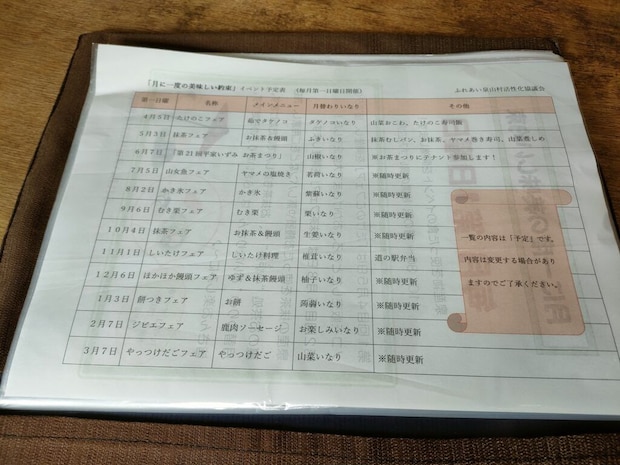 「月に一度の美味しい約束」イベント予定表 (毎月第一日曜日開催) ふれあい泉山村活性化協議会
第一日曜 名称 メインメニュー 月替わりいなり その他
4月5日 たけのこフェア 茹でタケノコ タケノコいなり 山菜おこわ、たけのこ寿司飯
5月3日 抹茶フェア お抹茶&饅頭 ふきいなり 抹茶むしパン、お抹茶、ヤマメ巻き寿司、山菜煮しめ
6月7日 「第21回平家いずみ お茶まつり」 山椒いなり ※お茶まつりにテナント参加します!
7月5日 山女魚フェア ヤマメの塩焼き 茗荷いなり ※随時更新
8月2日 かき氷フェア かき氷 紫蘇いなり ※随時更新
9月6日 むき栗フェア むき栗 栗いなり ※随時更新
10月4日 抹茶フェア お抹茶&饅頭 生姜いなり ※随時更新
11月1日 しいたけフェア しいたけ料理 椎茸いなり 道の駅弁当
12月6日 ほかほか饅頭フェア ゆず&抹茶饅頭 柚子いなり ※随時更新
1月3日 餅つきフェア お餅 蒟蒻いなり ※随時更新
2月7日 ジビエフェア 鹿肉ソーセージ お楽しみいなり ※随時更新
3月7日 やっつけだごフェア やっつけだご 山菜いなり ※随時更新
一覧の内容は「予定」です。
内容は変更する場合があり
ますのでご了承ください。